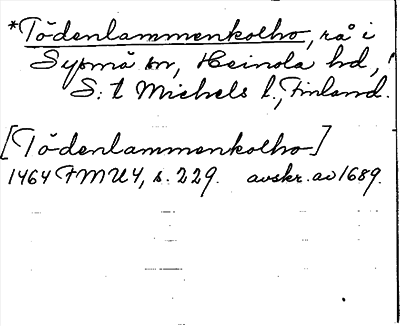 *Tödenlammenkolho, rå i
Sysmä sn, Heinola hd,
S:t Michels l., Finland.
[Tödenlammenkolho]
1464 FMU4, s. 229. avskr. av 1689.